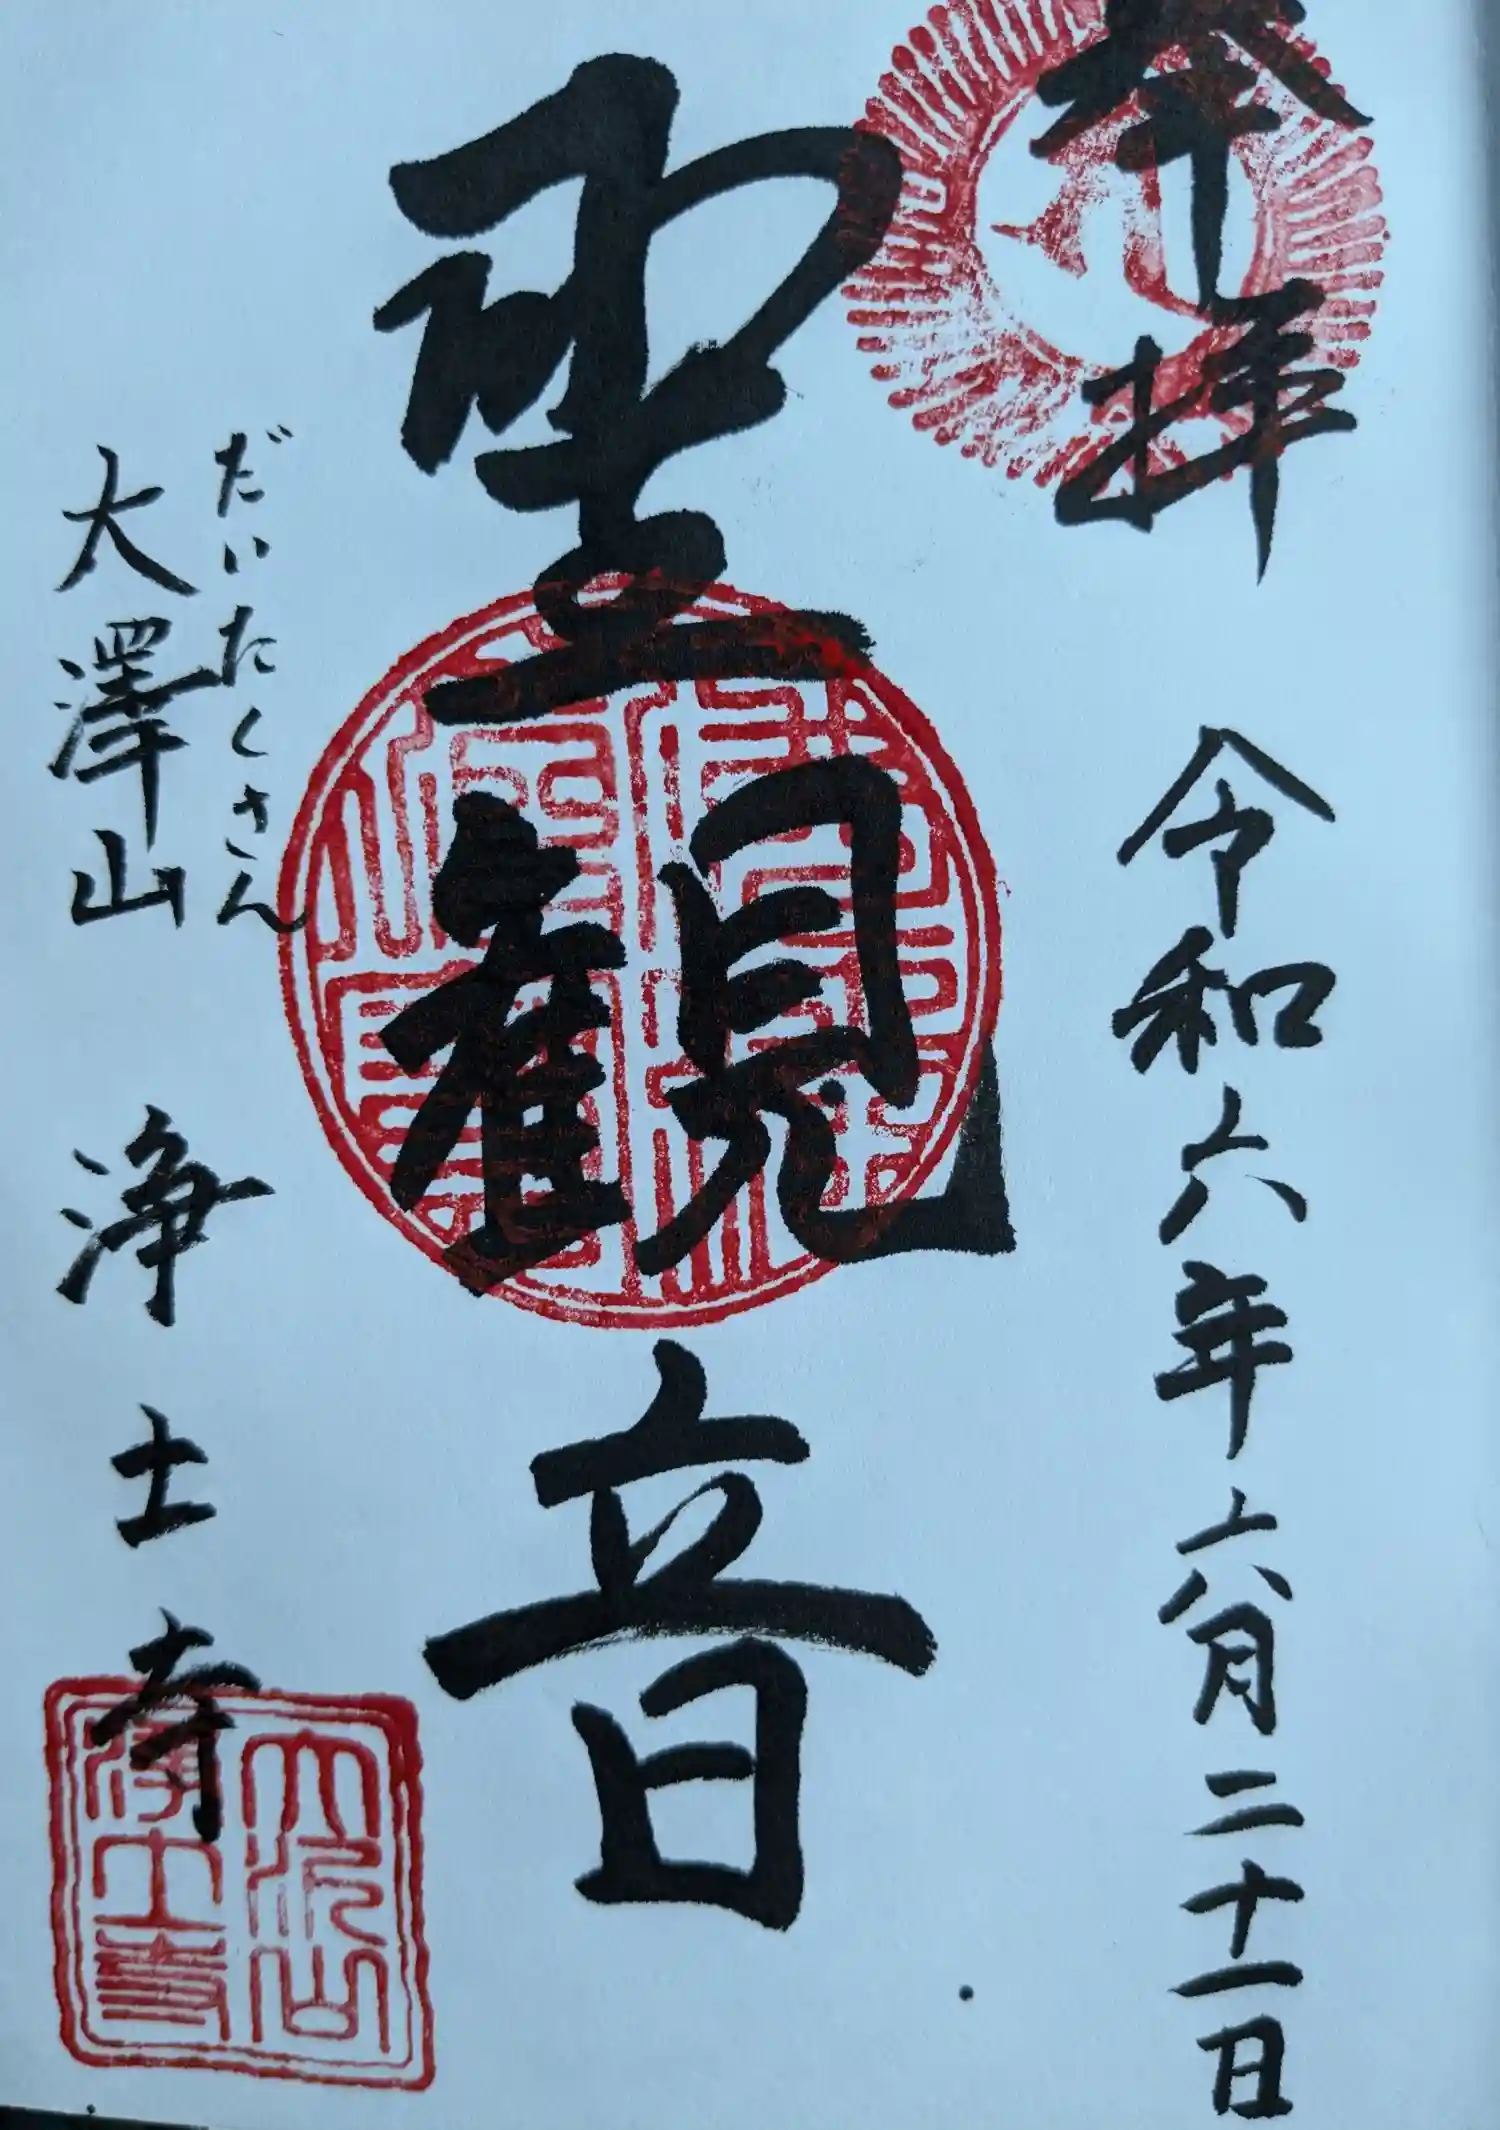 奉拝 令和六年六月二十一日
聖観音
だいたくさん
大澤山 浄土寺
大沢山
浄土寺